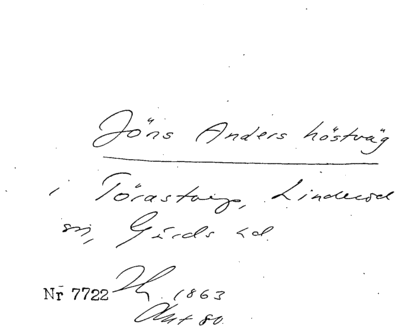 Jöns Anders höstväg
i Törastorp, Linderöd
sn, Gärds hd.
Nr 7722 1863
Okt 80.